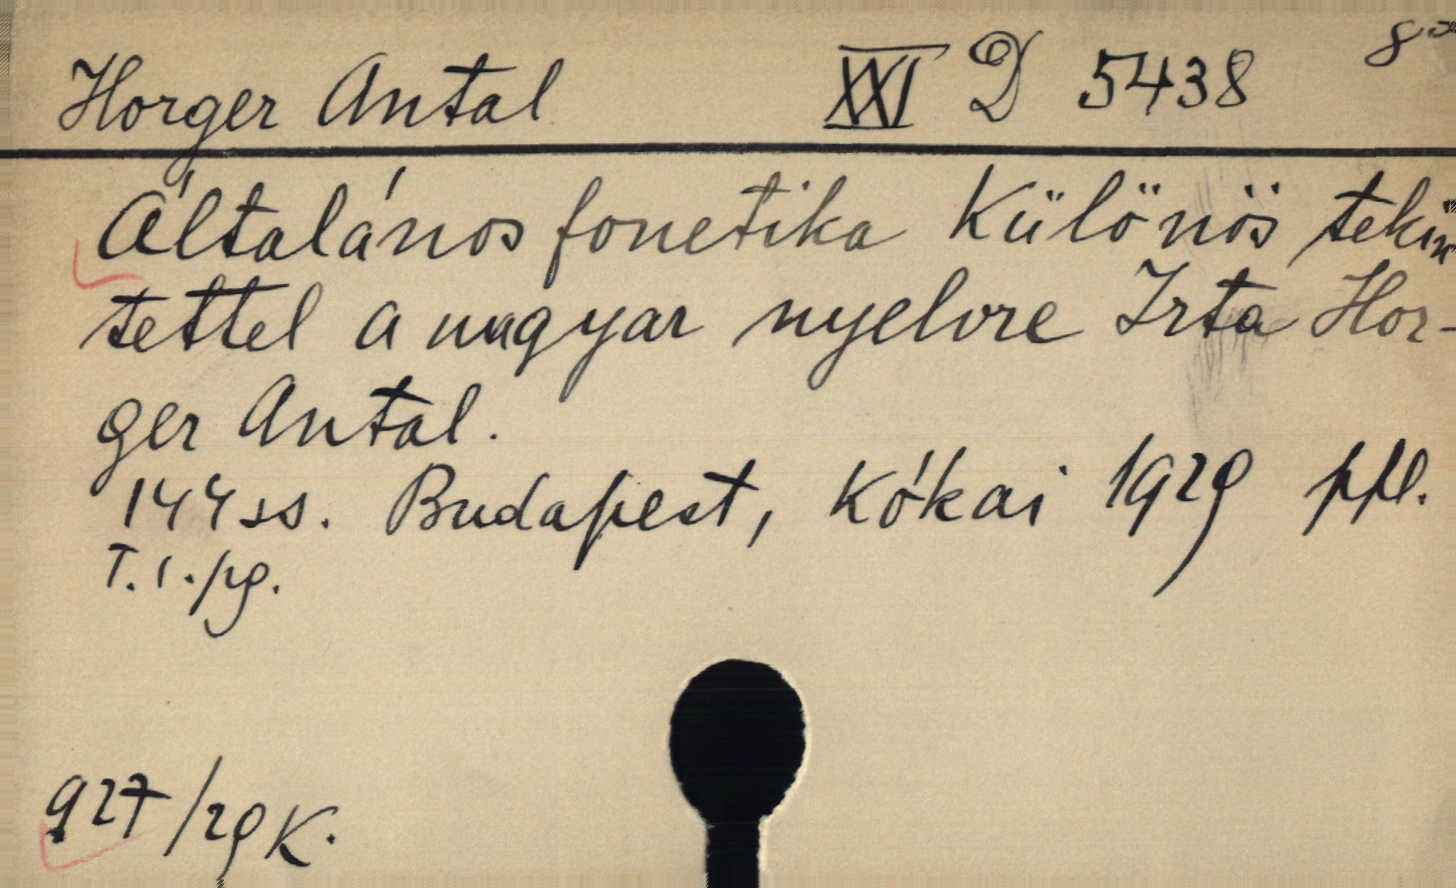 Horger Antal XXI D 5438 8°
Általános fonetika Különös tekin
tettel a magyar nyelvre Irta Hor-
ger Antal.
144 ss. Budapest, Kókai 1929 ppl.
T. 1./29.
927/29 K.